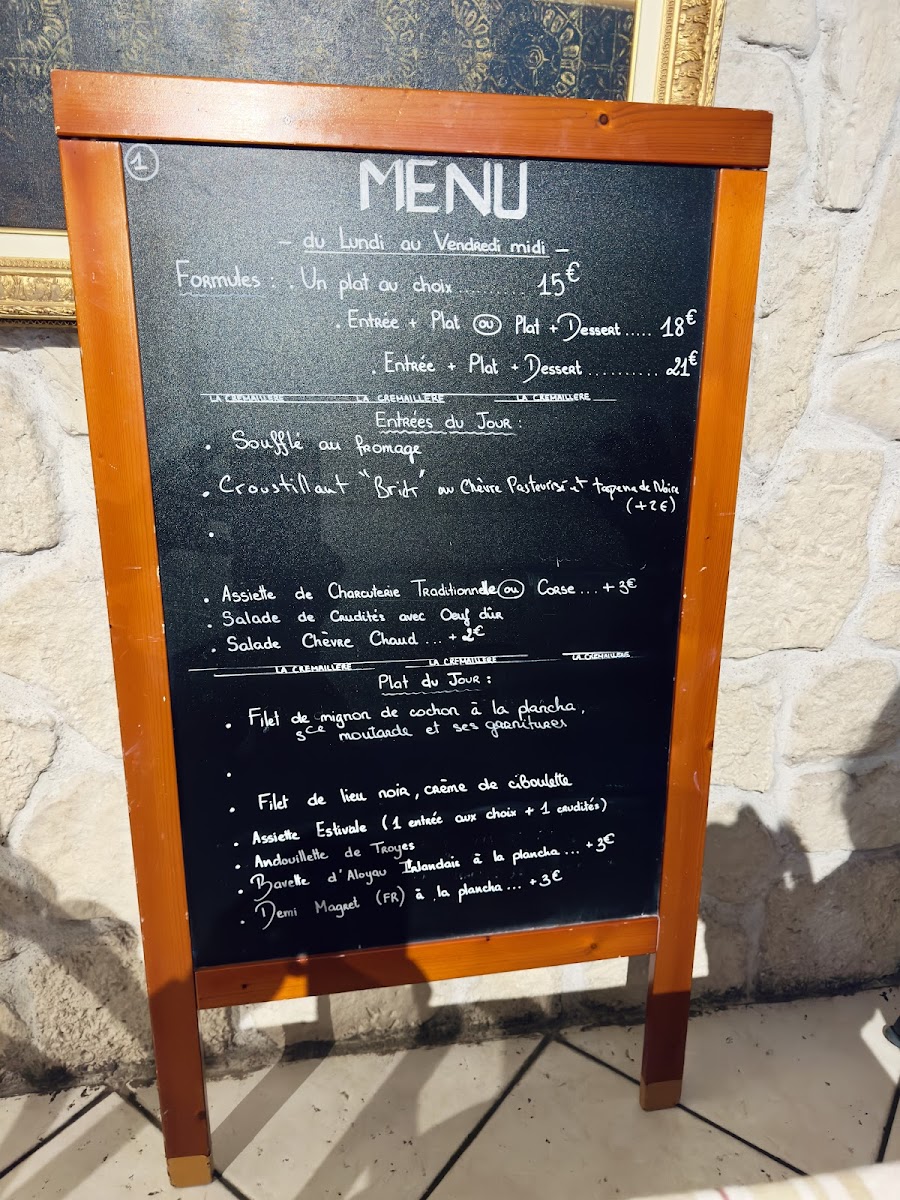 1
MENU
- du Lundi au Vendredi midi -
Formules : Un plat au choix ......... 15€
. Entrée + Plat ou Plat + Dessert ..... 18€
. Entrée + Plat + Dessert ........... 21€
LA CREMAILLERE LA CREMAILLERE LA CREMAILLERE
Entrées du Jour :
. Soufflé au fromage
. Croustillant "Brick" au Chèvre Pasteurisé et tapena de Noire
(+2€)
.
. Assiette de Charcuterie Traditionnelle ou Corse ... +3€
. Salade de Crudités avec Oeuf dûr
. Salade Chèvre Chaud ... +2€
LA CREMAILLERE LA CREMAILLERE LA CREMAILLERE
Plat du Jour :
. Filet de mignon de cochon à la plancha,
sce moutarde et ses garnitures
.
. Filet de lieu noir, crème de ciboulette
. Assiette Estivale (1 entrée aux choix + 1 crudités)
. Andouillette de Troyes
. Bavette d'Aloyau Irlandais à la plancha ... +3€
. Demi Magret (FR) à la plancha ... +3€